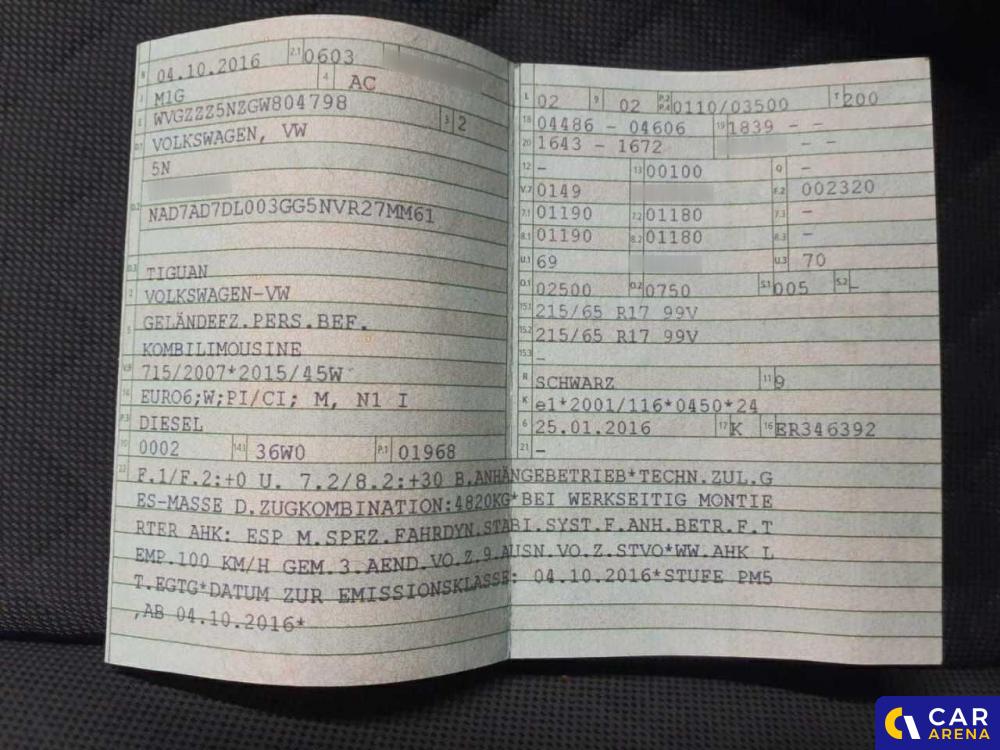 B 04.10.2016 2.1 0603
4 AC
J M1G
E WVGZZZ5NZGW804798 3 2
D.1 VOLKSWAGEN, VW
5N
D.2
NAD7AD7DL003GG5NVR27MM61
D.3 TIGUAN
2 VOLKSWAGEN-VW
5 GELÄNDEFZ.PERS.BEF.
KOMBILIMOUSINE
V.9 715/2007*2015/45W
14 EURO6;W;PI/CI; M, N1 I
P.3 DIESEL
10 0002 14.1 36W0 P.1 01968
L 02 9 02 P.2 P.4 0110/03500 T 200
18 04486 - 04606 19 1839 - -
20 1643 - 1672 - -
12 - 13 00100 Q -
V.7 0149 F.2 002320
7.1 01190 7.2 01180 7.3 -
8.1 01190 8.2 01180 8.3 -
U.1 69 U.3 70
O.1 02500 O.2 0750 S.1 005 S.2 -
15.1 215/65 R17 99V
15.2 215/65 R17 99V
15.3 -
R SCHWARZ 11 9
K e1*2001/116*0450*24
6 25.01.2016 17 K 16 ER346392
21 -
22 F.1/F.2:+0 U. 7.2/8.2:+30 B.ANHÄNGEBETRIEB*TECHN.ZUL.G
ES-MASSE D.ZUGKOMBINATION:4820KG*BEI WERKSEITIG MONTIE
RTER AHK: ESP M.SPEZ.FAHRDYN.STABI.SYST.F.ANH.BETR.F.T
EMP.100 KM/H GEM.3.AEND.VO.Z.9.AUSN.VO.Z.STVO*WW.AHK L
T.EGTG*DATUM ZUR EMISSIONSKLASSE: 04.10.2016*STUFE PM5
,AB 04.10.2016*
CAR
ARENA